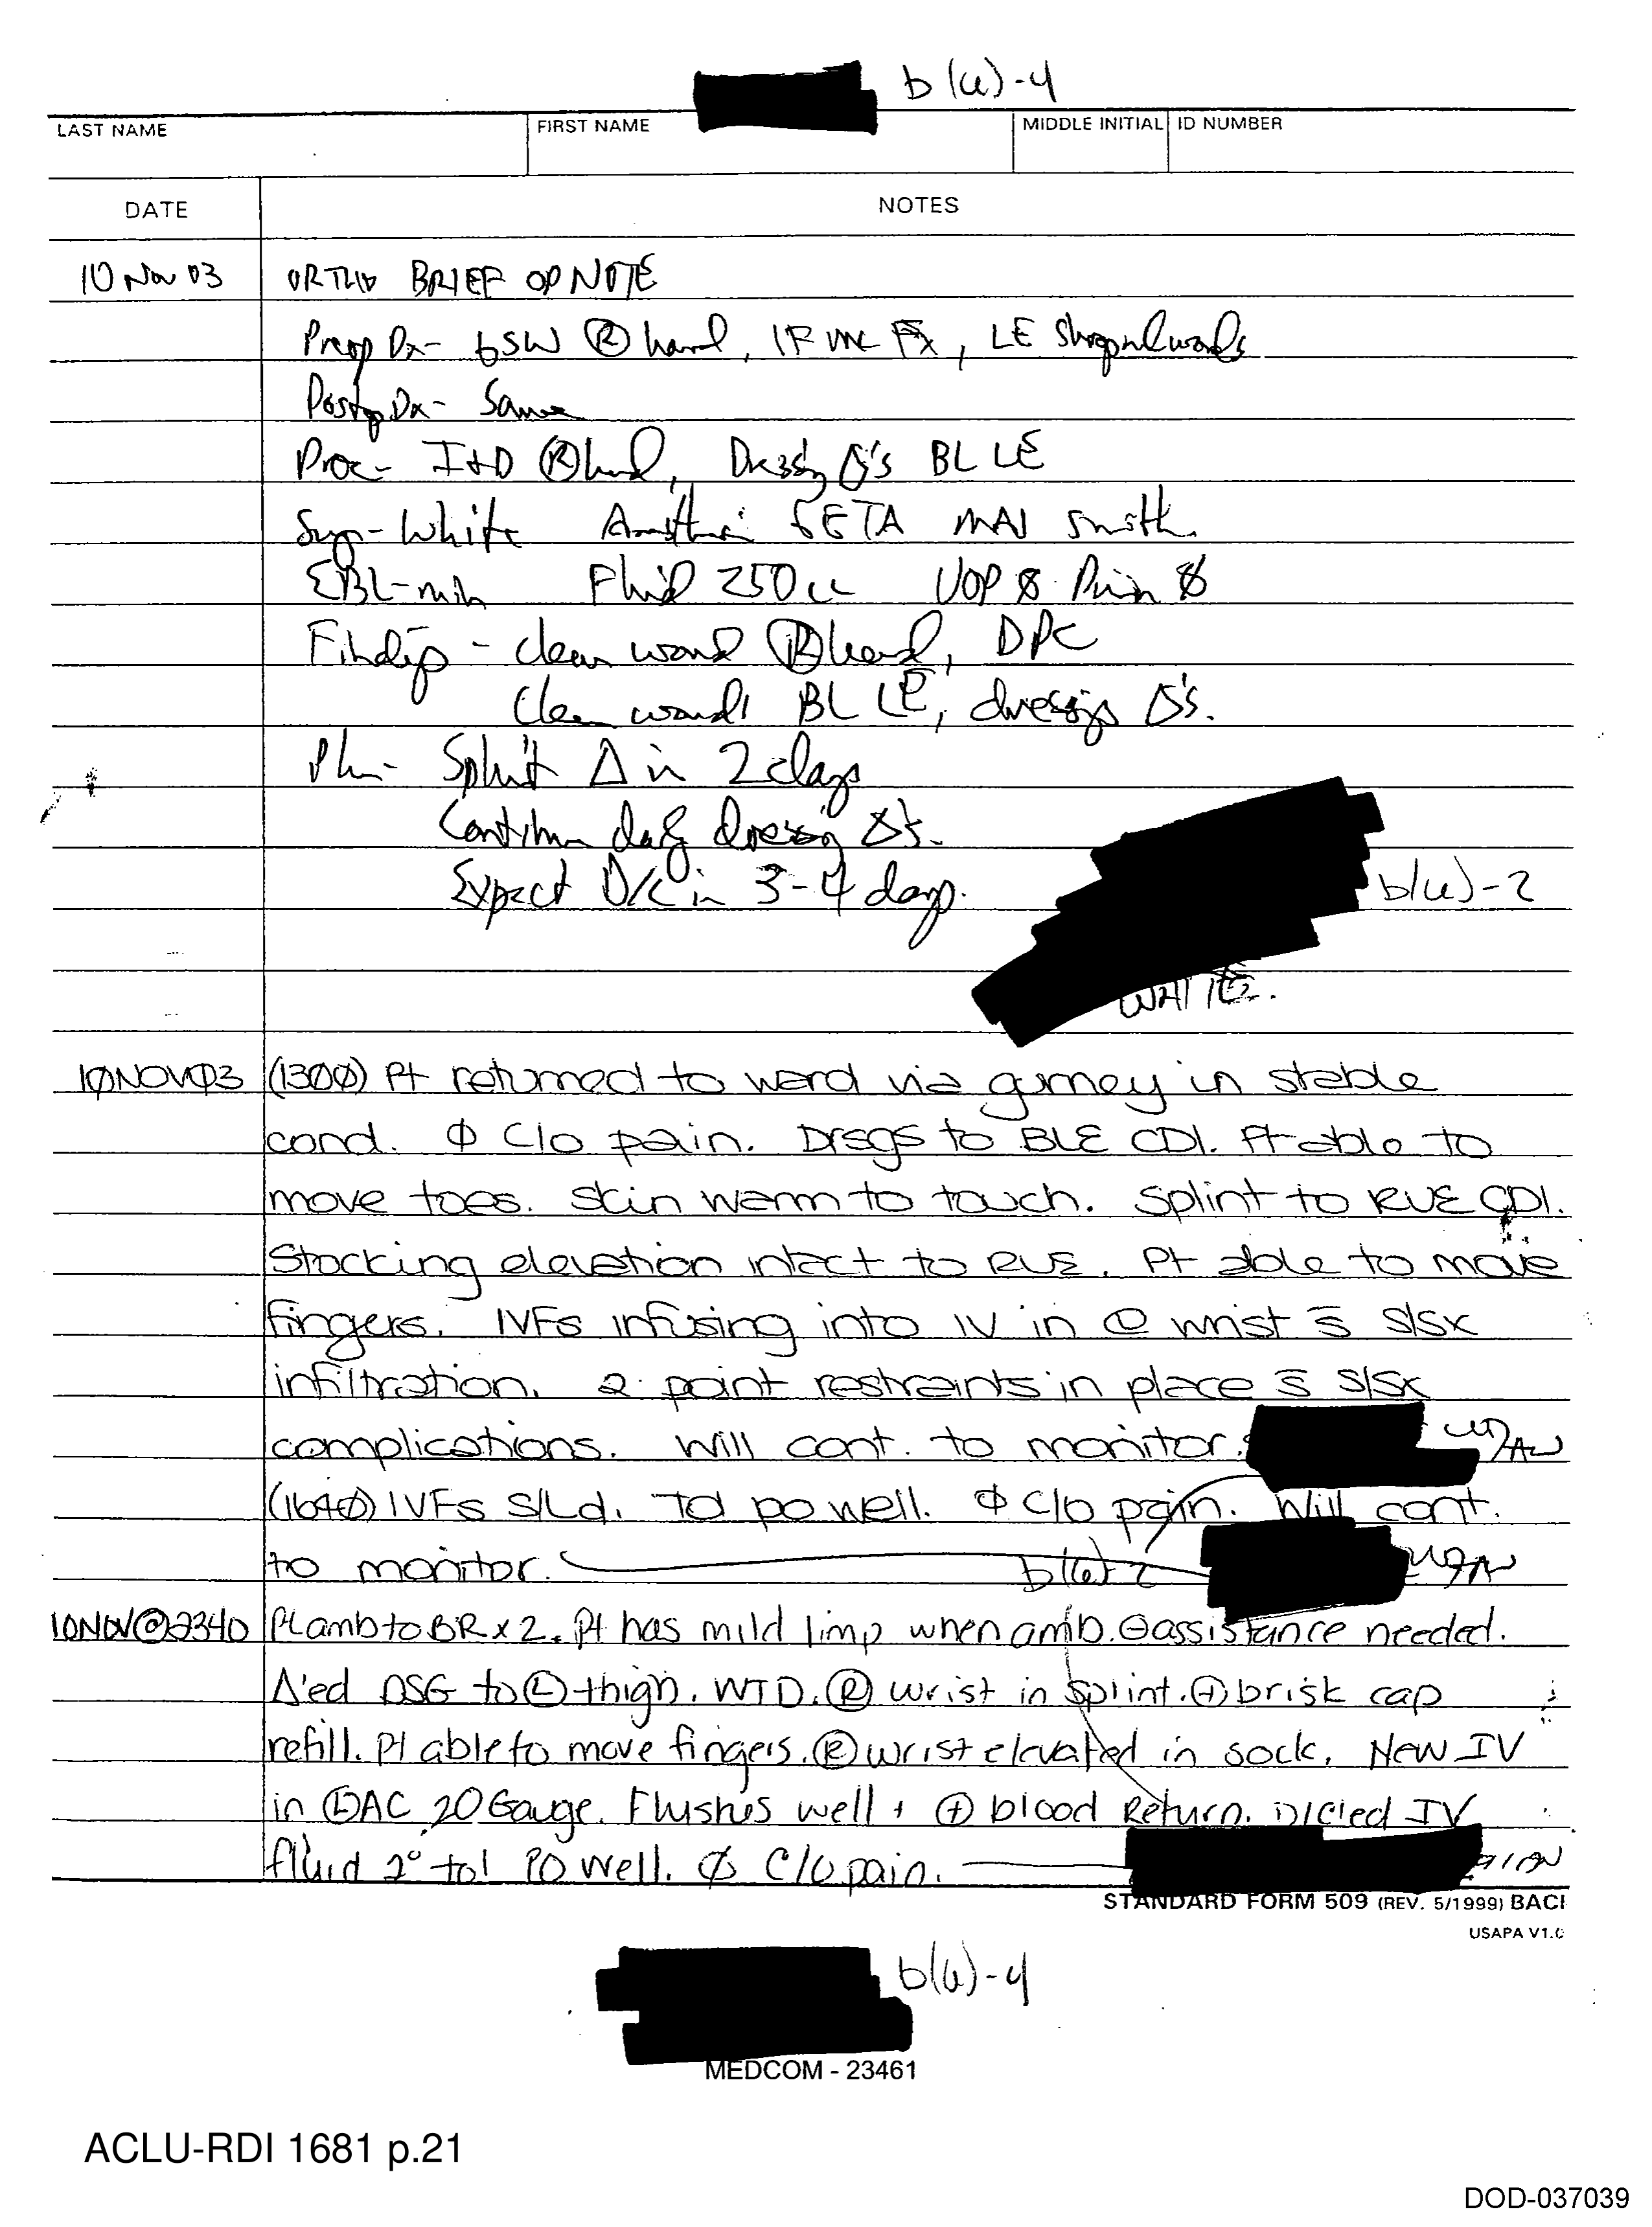 b(6)-4
LAST NAME FIRST NAME MIDDLE INITIAL ID NUMBER
DATE NOTES
10 Nov 03 ORTHO BRIEF OP NOTE
Preop Dx- GSW Ⓡ hand, IF MC Fx, LE Shrapnel wounds
Postop Dx- Same
Proc- I+D Ⓡ hand, Dressing Δ's BL LE
Surg- White GETA MAJ Smith.
EBL-min Fluid 250cc UOP Ø Drain Ø
Findings - clean wound Ⓡ hand, DPC
Clean wounds BL LE, dressings Δ's.
Plan- Splint Δ in 2 days
Continue daily dressing Δ's.
Expect D/C in 3-4 days.
b(6)-2
WHITE.
10NOV03 (1300) Pt returned to ward via gurney in stable
cond. Ø C/o pain. Drsgs to BLE CDI. Pt able to
move toes. Skin warm to touch. Splint to RUE CDI.
Stocking elevation intact to RUE. Pt able to move
fingers. IVFs infusing into IV in Ⓛ wrist s̄ S/Sx
infiltration. 2 point restraints in place s̄ S/Sx
complications. Will cont. to monitor.
(1640) IVFs S/Ld. Tol po well. Ø C/o pain. Will cont.
to monitor. b(6)-2
10NOV@2340 Pt amb to BR x 2. Pt has mild limp when amb. ⊖ assistance needed.
Δ'ed DSG to Ⓛ thigh. WTD. Ⓡ wrist in splint. ⊕ brisk cap
refill. Pt able to move fingers. Ⓡ wrist elevated in sock. New IV
in Ⓛ AC 20 Gauge. Flushes well + ⊕ blood Return. D/C'ed IV
fluid 2° tol PO well. Ø C/o pain.
STANDARD FORM 509 (REV. 5/1999) BACK
USAPA V1.0
b(6)-4
MEDCOM - 23461
ACLU-RDI 1681 p.21
DOD-037039